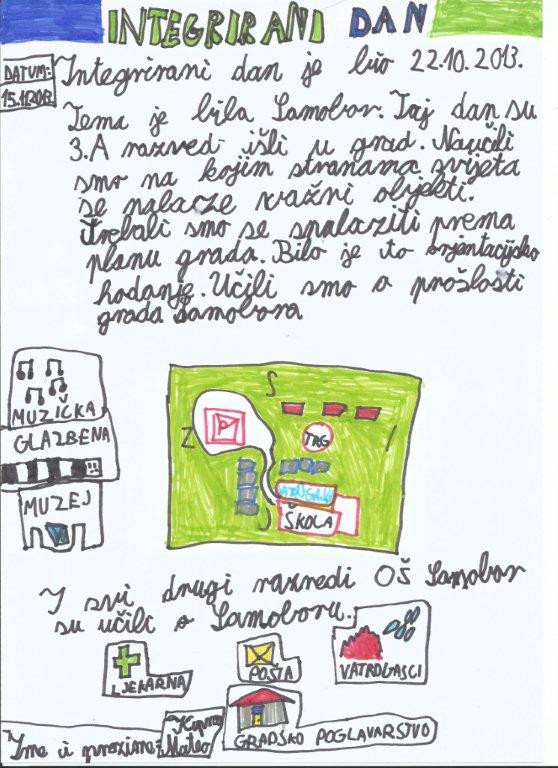 INTEGRIRANI DAN
DATUM:
15.11.2013.
Integrirani dan je bio 22.10.2013.
Tema je bila Samobor. Taj dan su
3.A razred išli u grad. Naučili
smo na kojim stranama svijeta
se nalaze važni objekti.
Trebali smo se snalaziti prema
planu grada. Bilo je to orjentacijsko
hodanje. Učili smo o prošlosti
grada Samobora
MUZIČKA
GLAZBENA
MUZEJ
S
Z
P
TRG
I
J
ŠKOLA
I svi drugi razredi OŠ Samobor
su učili o Samoboru.
LJEKARNA
POŠTA
VATROGASCI
GRADSKO POGLAVARSTVO
Ime i prezime:
Mateo